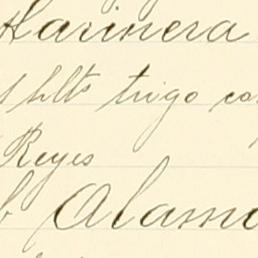 Harinera
hlts trigo co
Reyes
Alamo